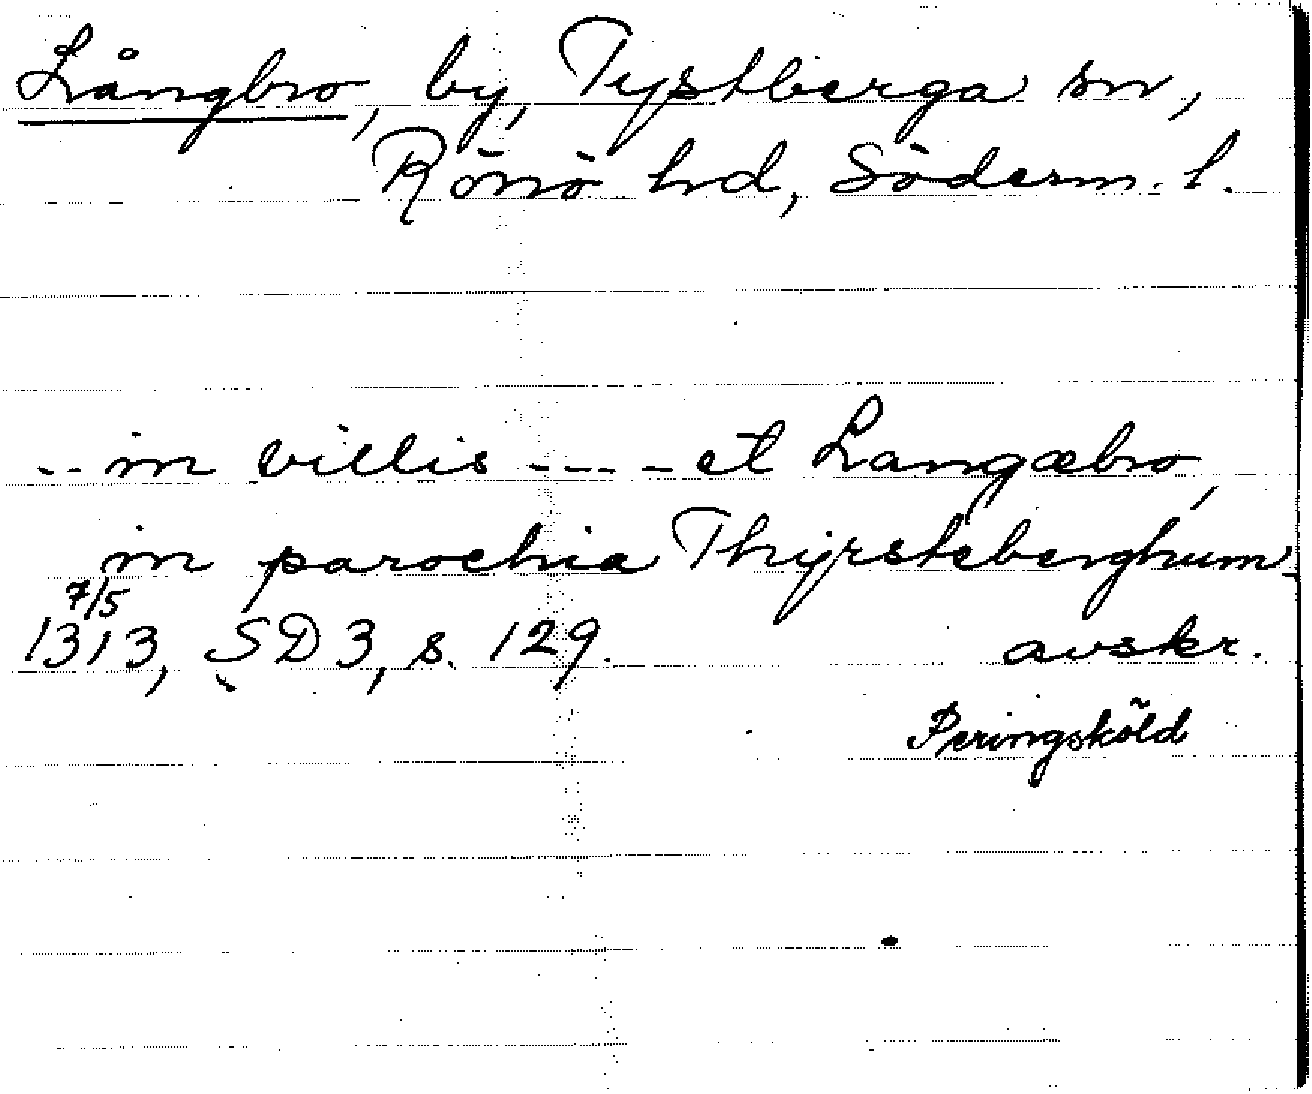 Långbro, by, Tystberga sn,
Rönö hd, Söderm. l.
-- in villis ---- et Langæbro,
in parochia Thyrstebærghum
7/5
1313, SD 3, s. 129. avskr.
Peringsköld